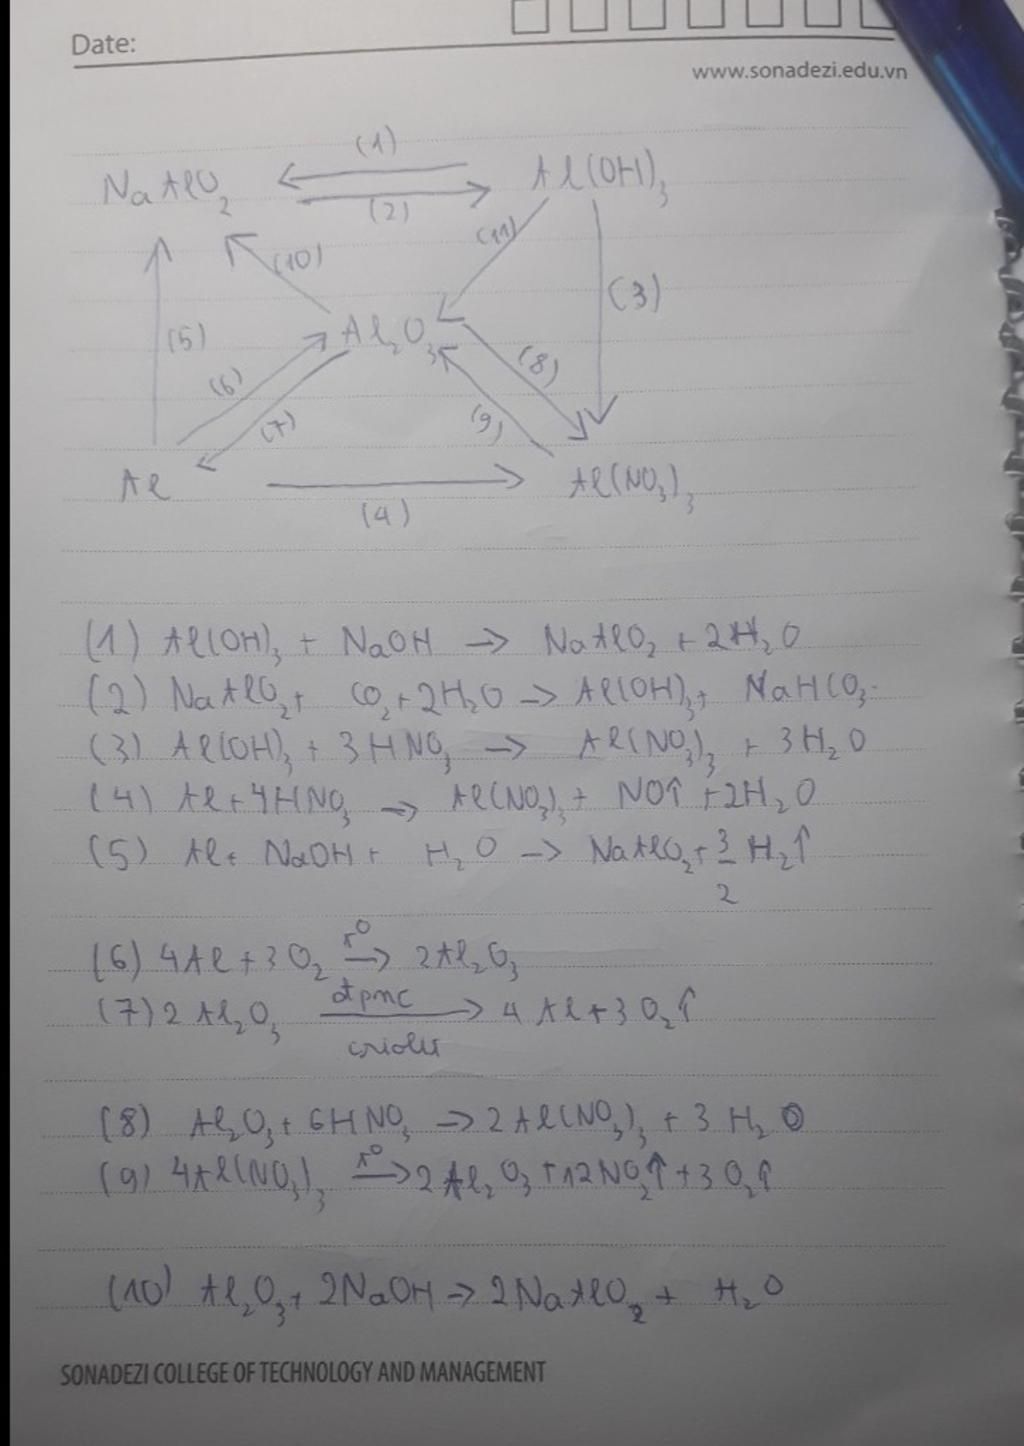 Date:
www.sonadezi.edu.vn
(1)
NaAlO₂ Al(OH)₃
(2)
(11)
(10)
(3)
(5)
Al₂O₃
(6)
(8)
(7)
(9)
Al Al(NO₃)₃
(4)
(1) Al(OH)₃ + NaOH → NaAlO₂ + 2H₂O
(2) NaAlO₂ + CO₂ + 2H₂O → Al(OH)₃ + NaHCO₃.
(3) Al(OH)₃ + 3HNO₃ → Al(NO₃)₃ + 3H₂O
(4) Al + 4HNO₃ → Al(NO₃)₃ + NO↑ + 2H₂O
(5) Al + NaOH + H₂O → NaAlO₂ + 3/2 H₂↑
(6) 4Al + 3O₂ t⁰→ 2Al₂O₃
(7) 2Al₂O₃ đpnc→ 4Al + 3O₂↑
criolit
(8) Al₂O₃ + 6HNO₃ → 2Al(NO₃)₃ + 3H₂O
(9) 4Al(NO₃)₃ t⁰→ 2Al₂O₃ + 12NO₂↑ + 3O₂↑
(10) Al₂O₃ + 2NaOH → 2NaAlO₂ + H₂O
SONADEZI COLLEGE OF TECHNOLOGY AND MANAGEMENT